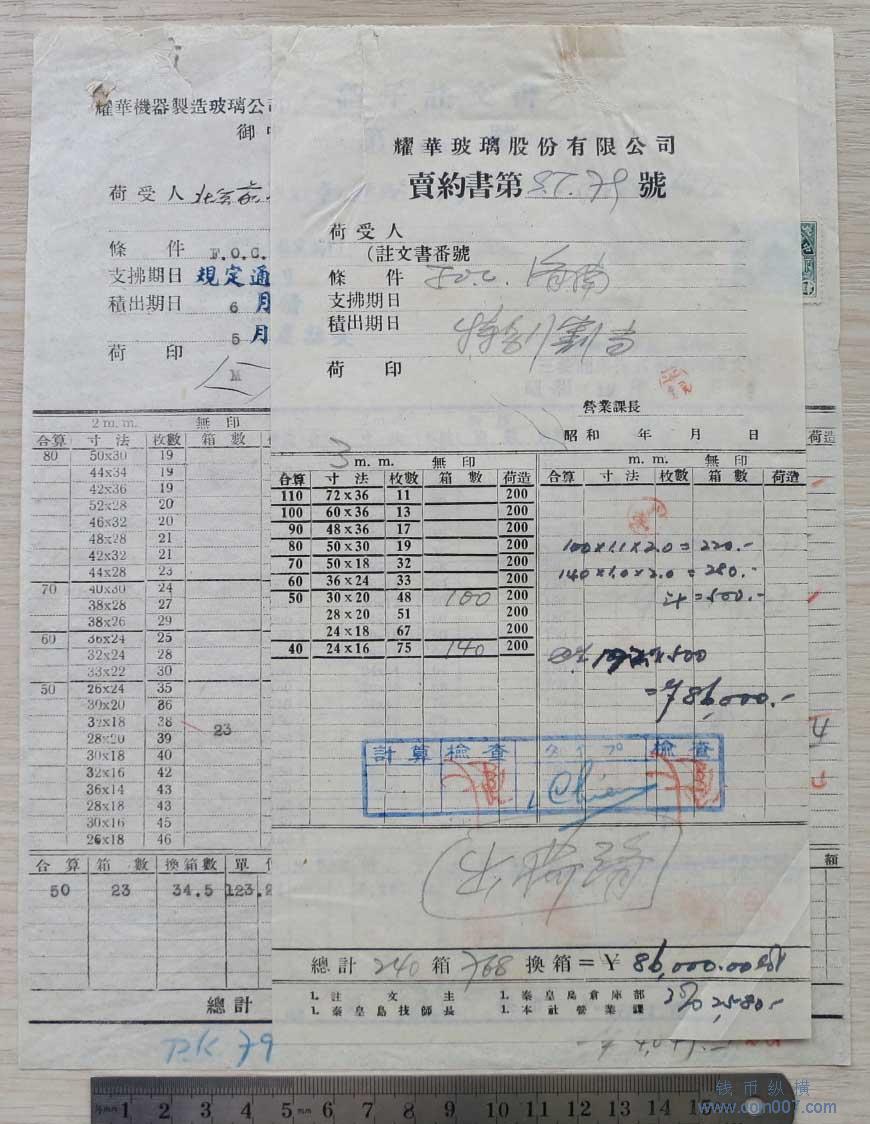 耀華機器製造玻璃公司
御中
荷受人
條件 F.O.C.
支拂期日 規定通
積出期日 6月
5月
荷印
M
2 m.m. 無印
合算 寸法 枚數 箱數
80 50x30 19
44x34 19
42x36 19
52x28 20
46x32 20
48x28 21
42x32 21
44x28 23
70 40x30 24
38x28 27
38x26 29
60 36x24 25
32x24 28
33x22 30
50 26x24 35
30x20 36
32x18 38
28x20 39 23
30x18 40
32x16 42
36x14 43
28x18 43
30x16 45
26x18 46
合算 箱數 換箱數 單
50 23 34.5 123.2
總計
耀華玻璃股份有限公司
賣約書第 號
荷受人
(註文書番號
條件 F.O.C. 濟南
支拂期日
積出期日
荷印
營業課長
昭和 年 月 日
3 m. m. 無印 m. m. 無印
合算 寸法 枚數 箱數 荷造 合算 寸法 枚數 箱數 荷造
110 72 x 36 11 200
100 60 x 36 13 200
90 48 x 36 17 200
80 50 x 30 19 200
70 50 x 18 32 200
60 36 x 24 33 200
50 30 x 20 48 100 200
28 x 20 51 200
24 x 18 67 200
40 24 x 16 75 140 200
100 x 1.1 x 2.0 = 220.-
140 x 1.0 x 2.0 = 280.-
計 = 500.-
= ¥86,000.-
計算 檢查 タイプ 檢查
總計 240 箱 768 換箱 = ¥ 86,000.00
1. 註文主 1. 秦皇島倉庫部
1. 秦皇島技師長 1. 本社營業課
荷造
額
1 2 3 4 5 6 7 8 9 10 11 12 13 14 15
钱币纵横
www.coin007.com